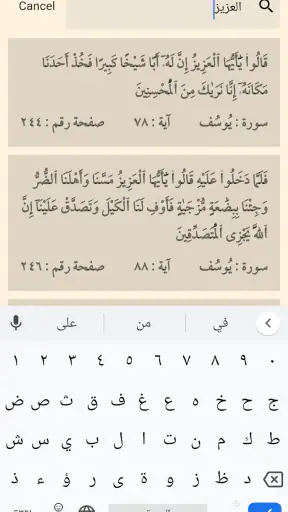 Cancel العزيز
قَالُوا۟ يَٰٓأَيُّهَا ٱلْعَزِيزُ إِنَّ لَهُۥٓ أَبًا شَيْخًا كَبِيرًا فَخُذْ أَحَدَنَا
مَكَانَهُۥٓ إِنَّا نَرَىٰكَ مِنَ ٱلْمُحْسِنِينَ
سورة : يُوسُف آية : ٧٨ صفحة رقم : ٢٤٤
فَلَمَّا دَخَلُوا۟ عَلَيْهِ قَالُوا۟ يَٰٓأَيُّهَا ٱلْعَزِيزُ مَسَّنَا وَأَهْلَنَا ٱلضُّرُّ
وَجِئْنَا بِبِضَٰعَةٍ مُّزْجَىٰةٍ فَأَوْفِ لَنَا ٱلْكَيْلَ وَتَصَدَّقْ عَلَيْنَآ إِنَّ
ٱللَّهَ يَجْزِى ٱلْمُتَصَدِّقِينَ
سورة : يُوسُف آية : ٨٨ صفحة رقم : ٢٤٦
في من على
١ ٢ ٣ ٤ ٥ ٦ ٧ ٨ ٩ ٠
ج ح خ ه ع غ ف ق ث ص ض
ط ك م ن ت ا ل ب ي س ش
د ظ ز و ة ى ر ؤ ء ذ